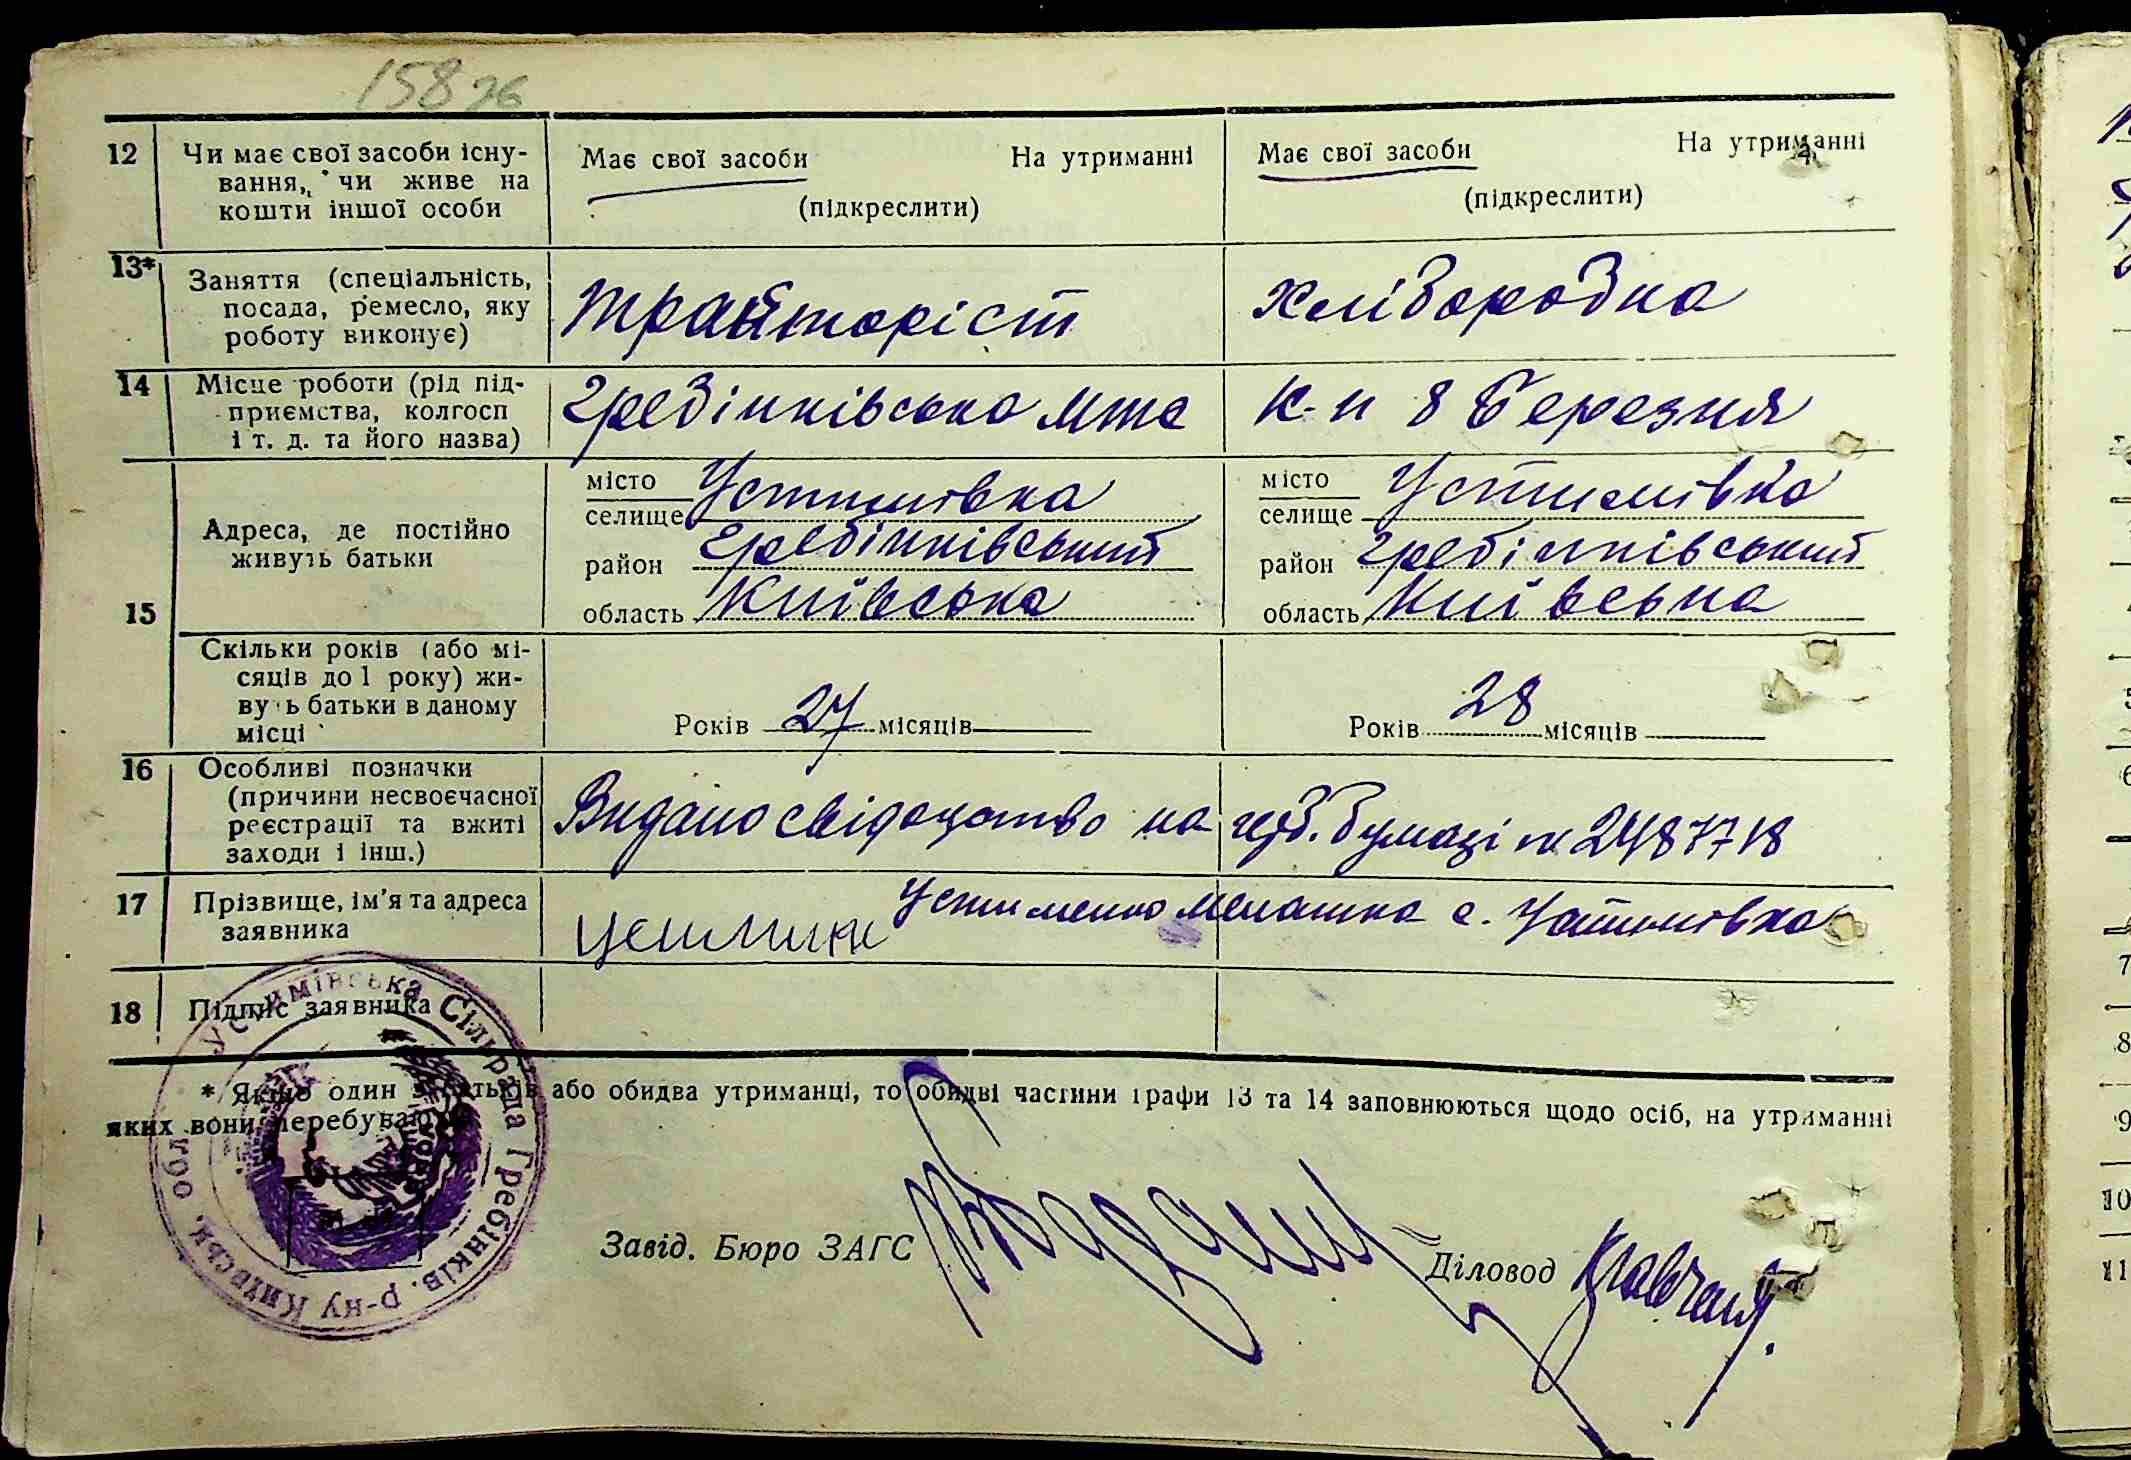 158 зв
12 Чи має свої засоби існування, чи живе на кошти іншої особи
Має свої засоби На утриманні
(підкреслити)
Має свої засоби На утриманні
(підкреслити)
13* Заняття (спеціальність, посада, ремесло, яку роботу виконує)
тракторіст
хліборобка
14 Місце роботи (рід підприємства, колгосп і т. д. та його назва)
Гребінківська мтс
к-п 8 Березня
15 Адреса, де постійно живуть батьки
місто
селище Устимівка
район Гребінківський
область Київська
місто
селище Устимівка
район Гребінківський
область Київська
Скільки років (або місяців до 1 року) живуть батьки в даному місці
Років 27 місяців
Років 28 місяців
16 Особливі позначки (причини несвоєчасної реєстрації та вжиті заходи і інш.)
Видано свідоцтво на герб. бумазі № 2487718
17 Прізвище, ім'я та адреса заявника
Устименко Мелашка с. Устимівка
18 Підпис заявника
* Якщо один з батьків або обидва утриманці, то обидві частини графи 13 та 14 заповнюються щодо осіб, на утриманні
яких вони перебувають
Устимівська Сільрада Гребінків. р-ну Київськ. обл.
Завід. Бюро ЗАГС
Діловод